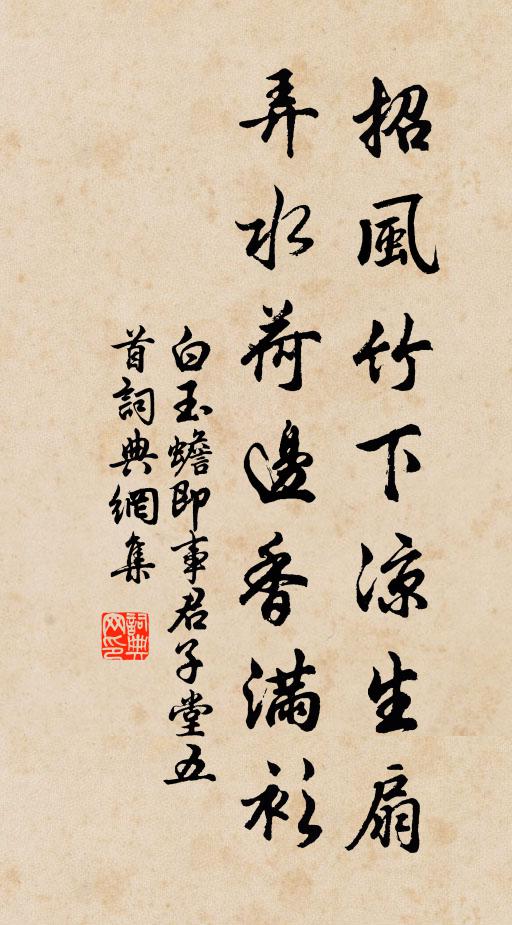 招風竹下凉生扇
弄水荷邊香滿衫
白玉蟾即事君子堂五
首詞典網集
詞典网印